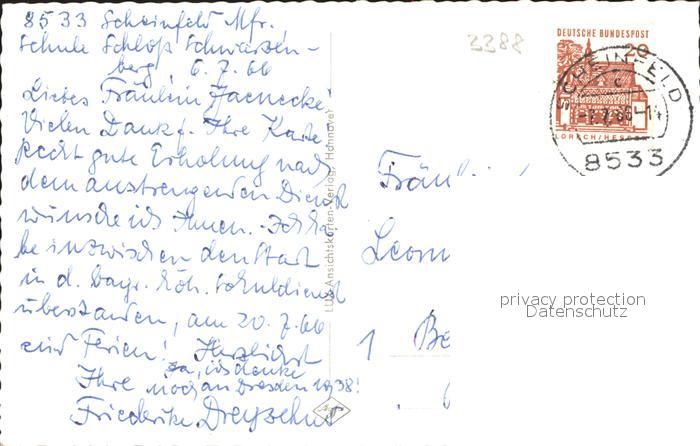 8533 Scheinfeld Mfr.
Schule Schloß Schwarzen-
berg, 6.7.66
Liebes Fräulein Jaenecke!
Vielen Dank f. Ihre Karte.
Recht gute Erholung nach
dem anstrengenden Dienst
wünsche ich Ihnen. Ich ha-
be inzwischen den Start
in d. Bayr. höh. Schuldienst
überstanden, am 20.7.66
sind Ferien! Herzlichst
Ja, ich denke
Ihre noch an Dresden 1938!
Friederike
LUX Ansichtskarten-Verlag, Hannover
3388
DEUTSCHE BUNDESPOST
20
LORSCH/HESSEN
SCHEINFELD
8533
Fräu
Leon
1 Be
privacy protection
Datenschutz